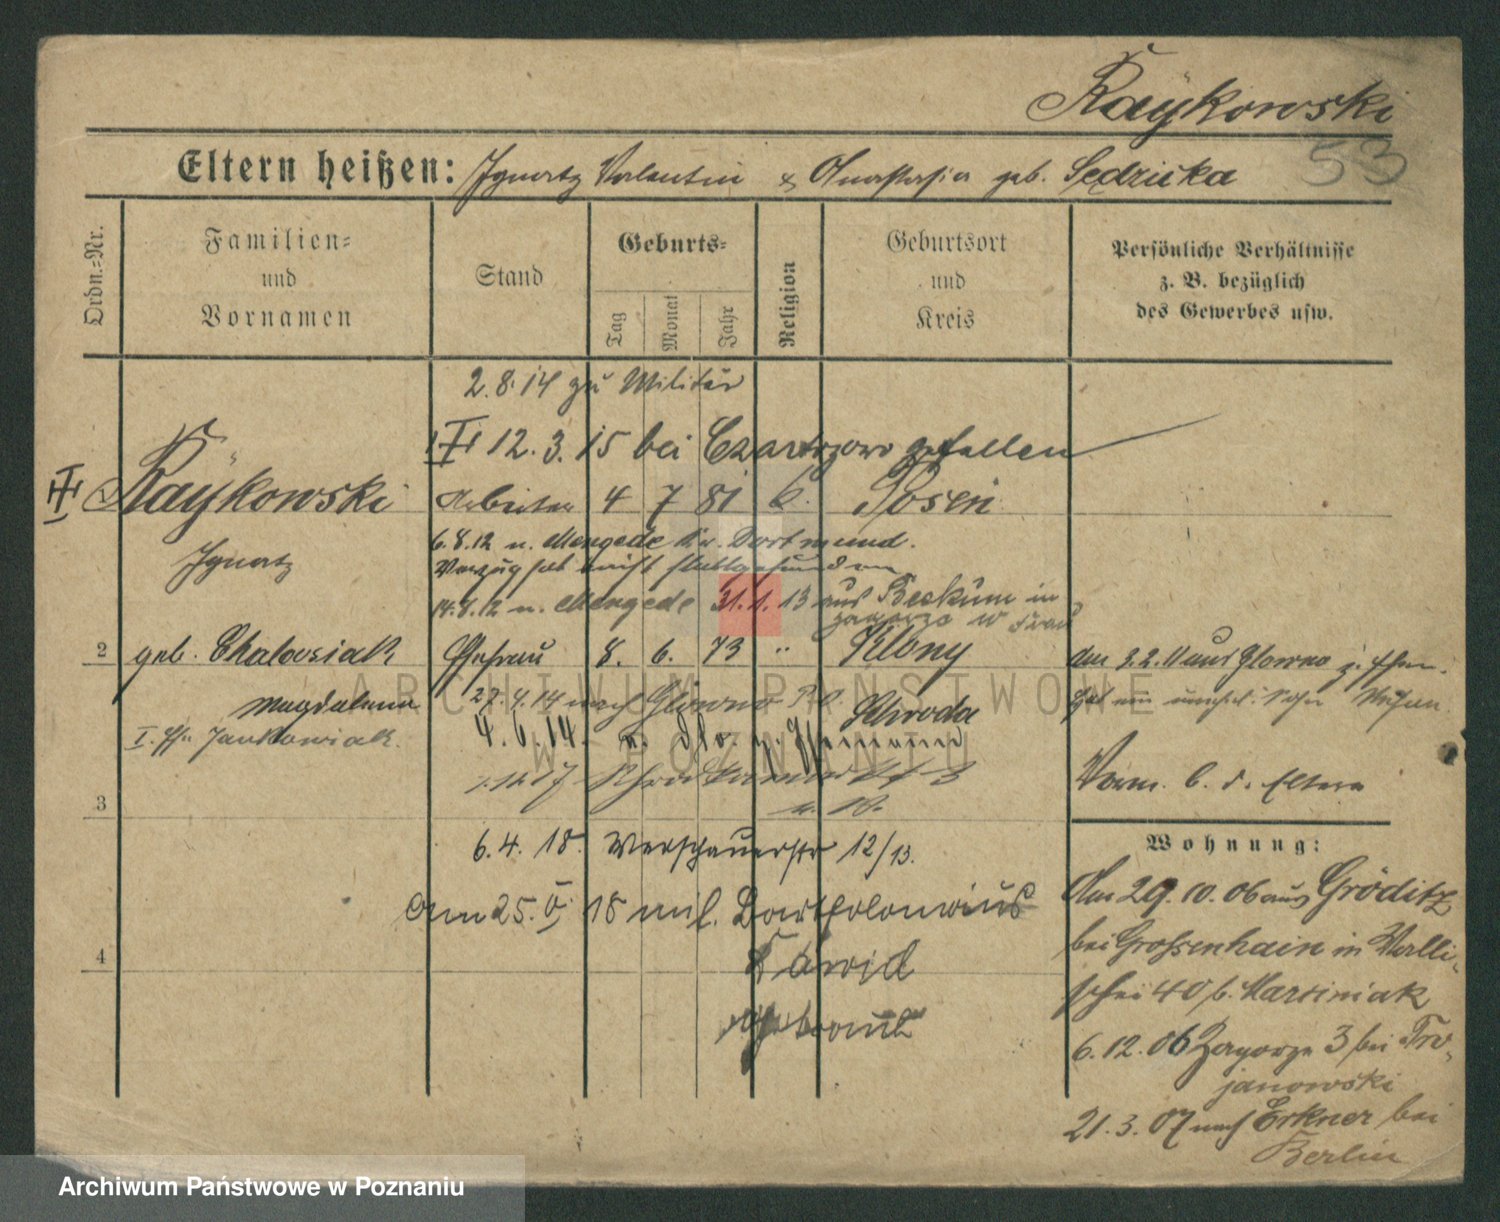 Raÿkowski
53
Eltern heißen: Ignatz Valentin & Anastasia geb. Sedzicka
Ordn.-Nr.
Familien-
und
Vornamen
Stand
Geburts-
Tag
Monat
Jahr
Religion
Geburtsort
und
Kreis
Persönliche Verhältnisse
z. B. bezüglich
des Gewerbes usw.
2.8.14 zu Militär
12.3.15 bei gefallen
1 Raÿkowski Arbeiter 4 7 81 k. Posen
Ignatz
6.8.12 n. Mengede Kr. Dortmund.
Verzug hat nicht stattgefunden
14.8.12 n. Mengede 31.1.13 aus Beckum in
Zagorze
2 geb. Chalosiak Ehefrau 8. 6. 73 " Klony
Magdalena
27.4.14 nach Glowno
Schroda
I. Jankowiak
4.6.14.
am 3.2.11 aus Glowno z.
Vorm. b. d. Eltern
3
6.4.18. Warschauerstr 12/13.
am 25. 18 mit Bartholomäus
Dawid
4
getraut
Wohnung:
Am 29.10.06 aus Gröditz
bei Grossenhain in Walli-
schei 40 b. Marciniak
6.12.06 Zagorze 3 bei Tro-
janowski
21.3.07 nach Erkner bei
Berlin
ARCHIWUM PAŃSTWOWE
W POZNANIU
Archiwum Państwowe w Poznaniu